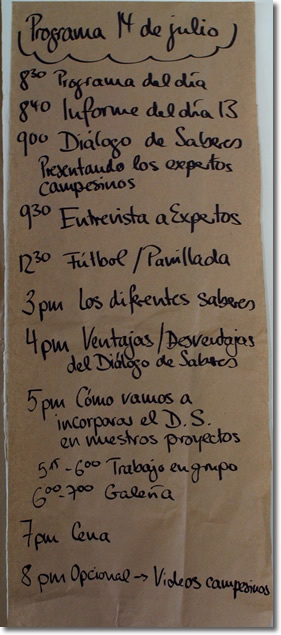 Programa 14 de julio
8³⁰ Programa del día
8⁴⁰ Informe del día 13
9⁰⁰ Diálogo de Saberes
Presentando los expertos
campesinos
9³⁰ Entrevista a Expertos
12³⁰ Fútbol / Parrillada
3 pm Los diferentes saberes
4 pm Ventajas / Desventajas
del Diálogo de Saberes
5 pm Cómo vamos a
incorporar el D. S.
en nuestros proyectos
5¹⁵ - 6⁰⁰ Trabajo en grupo
6⁰⁰ - 7⁰⁰ Galería
7 pm Cena
8 pm Opcional → Videos campesinos